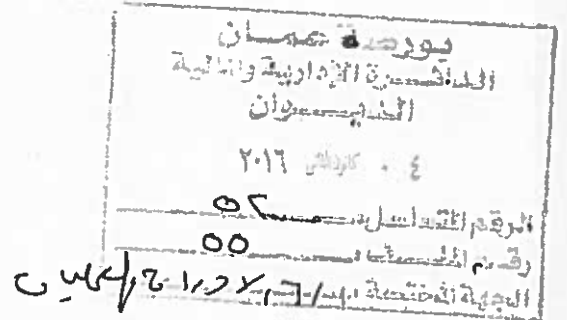 بورصة عمان
الدائرة الإدارية والمالية
الديوان
٤ . كانون ٢٠١٦
الرقم المتسلسل ٥٢
رقم ٥٥
الجهة المختصة الإدراج